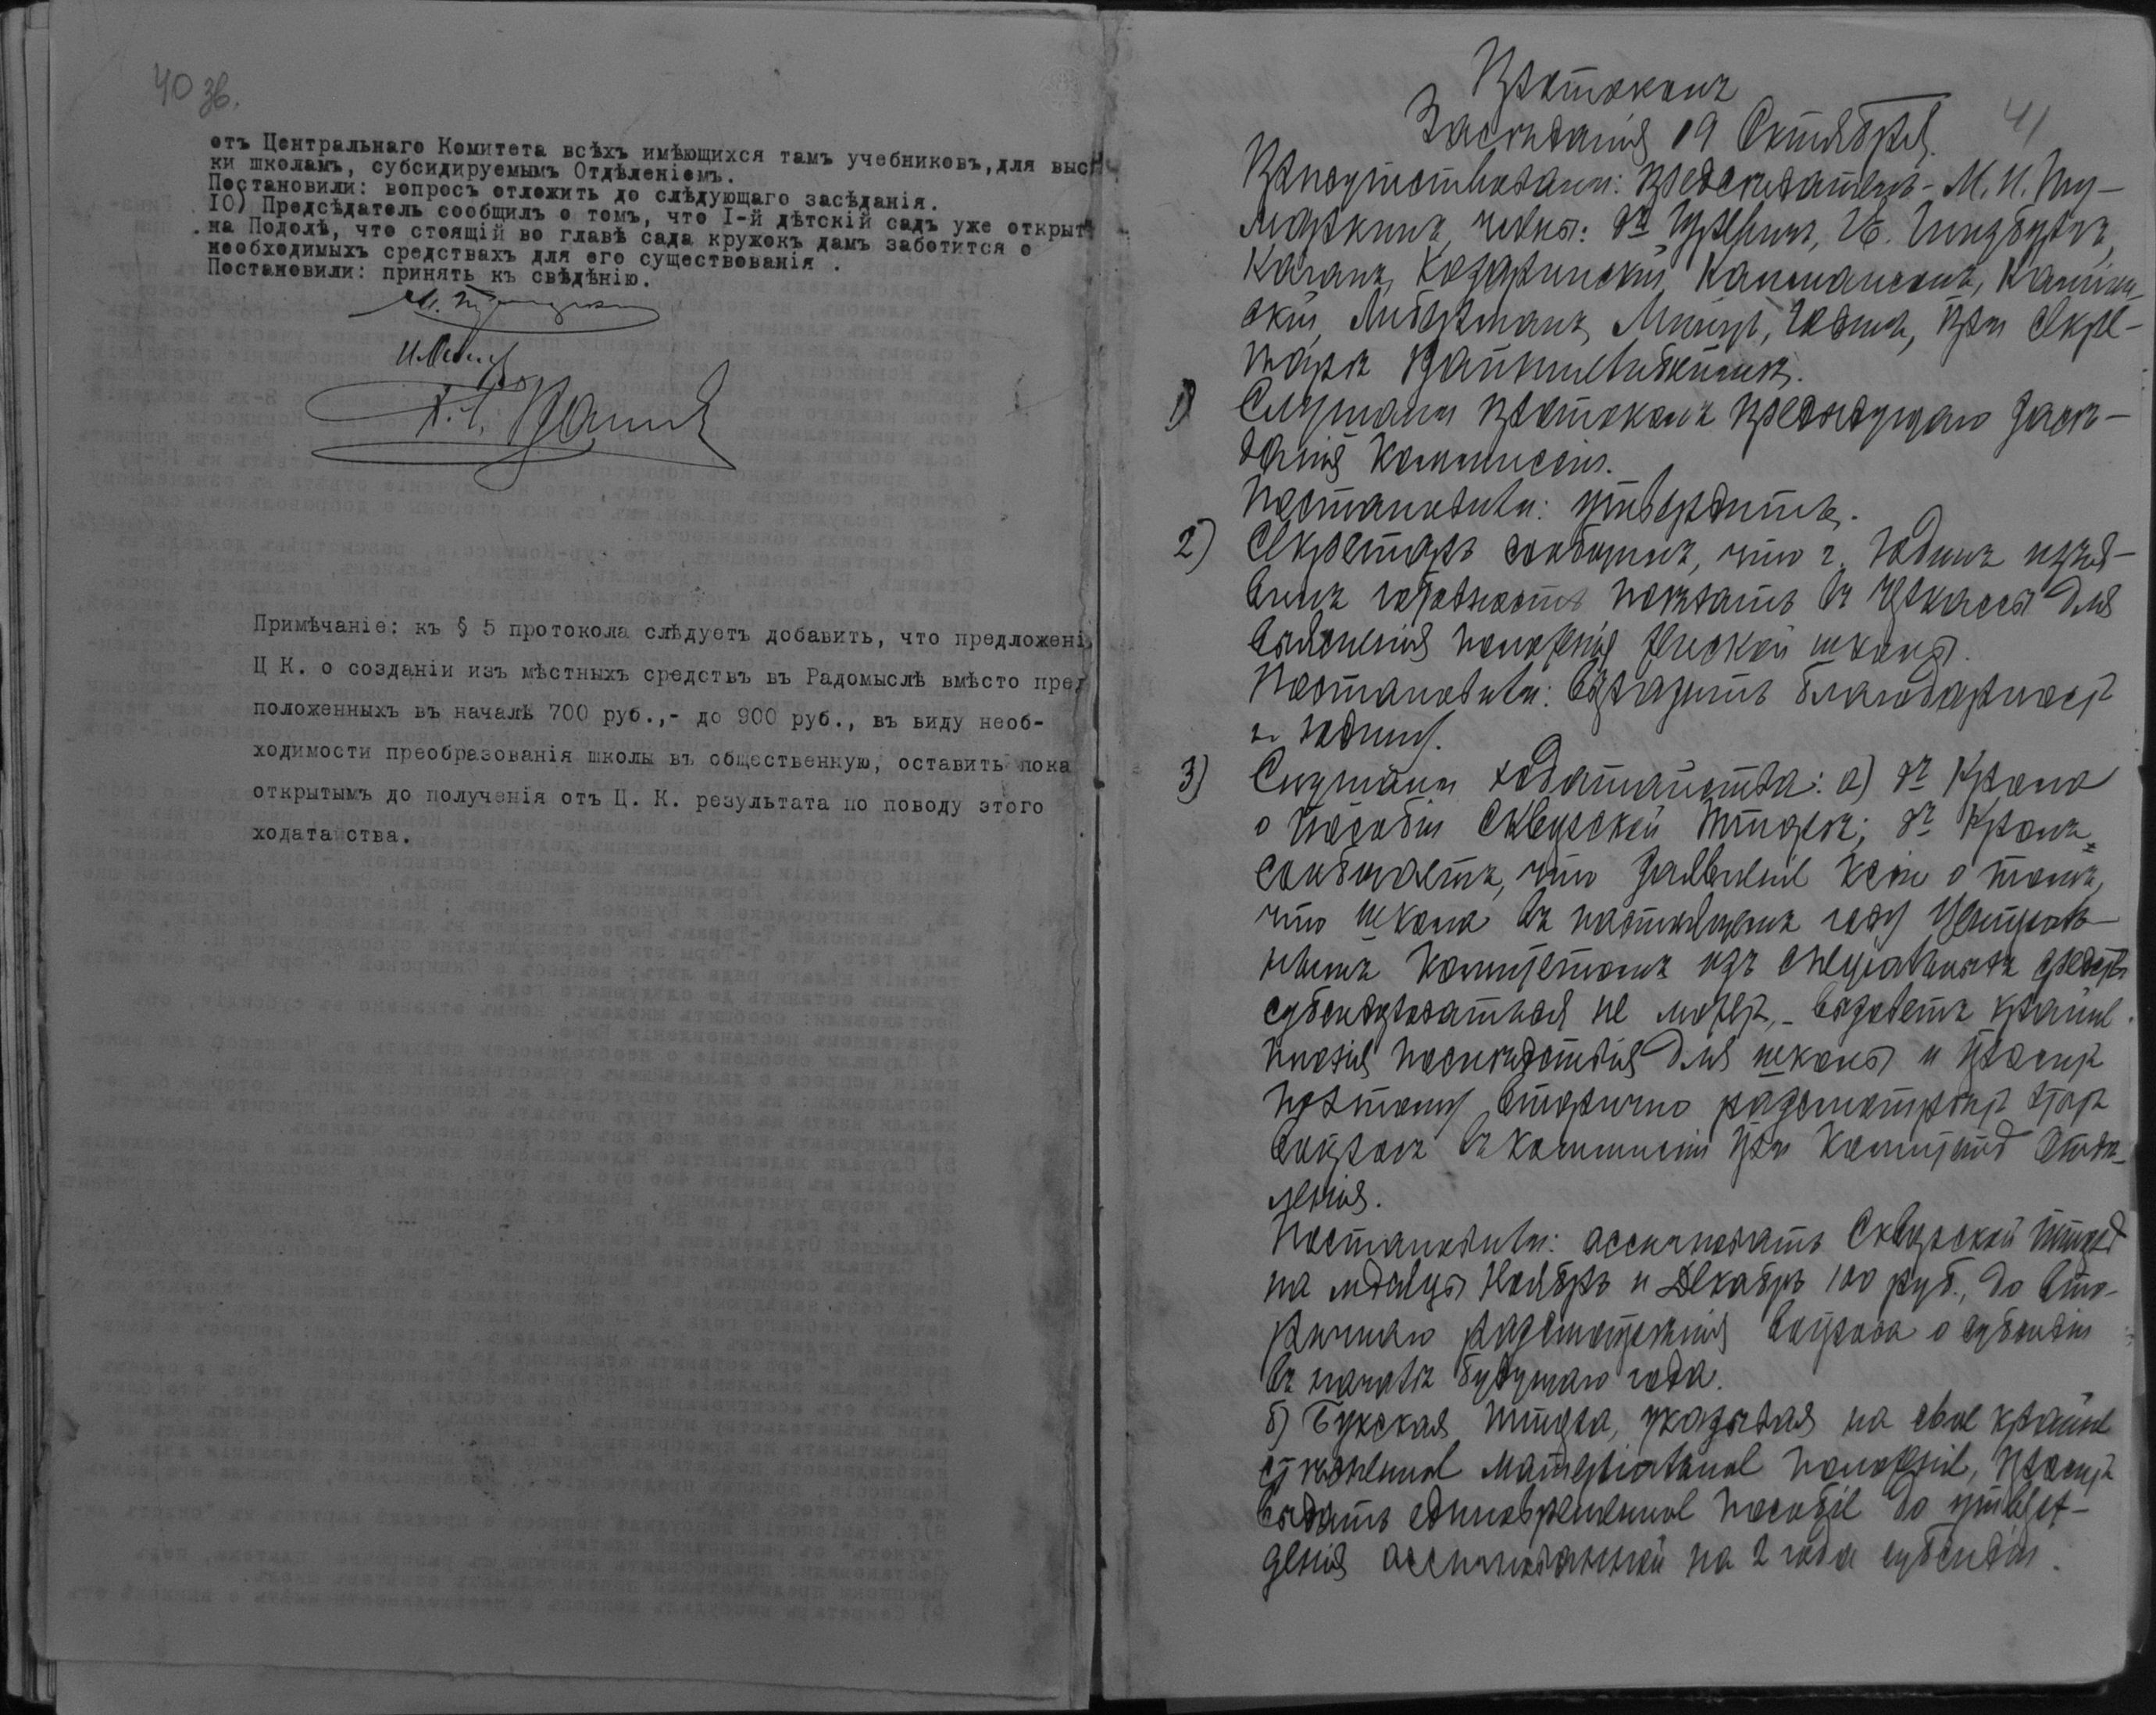 40 зв.
отъ Центральнаго Комитета всѣхъ имѣющихся там учебниковъ, для высы
ки школамъ, субсидируемымъ Отдѣленіемъ.
Постановили: вопросъ отложить до слѣдующаго засѣданія.
10) Предсѣдатель сообщилъ о томъ, что I-й дѣтскій садъ уже открытъ
на Подолѣ, что стоящій во главѣ сада кружокъ дамъ заботится о
необходимыхъ средствахъ для его существованія .
Постановили: принять къ свѣдѣнію.
Примѣчаніе: къ § 5 протокола слѣдуетъ добавить, что предложені
Ц К. о созданіи изъ мѣстныхъ средствъ въ Радомыслѣ вмѣсто пред
положенныхъ въ началѣ 700 руб.,- до 900 руб., въ виду необ-
ходимости преобразованія школы въ общественную, оставить пока
открытымъ до полученія отъ Ц. К. результата по поводу этого
ходата ства.
41
Протоколъ
Засѣданія 19 Октября.
Присутствовали: Предсѣдатель - М. И.
члены: д-ръ Гуревичъ, Гинзбургъ,
Каганъ, Козаринскій,
скій, Либерманъ, при секре-
тарѣ
1) Слушали протоколъ предыдущаго засѣ-
данія Коммиссіи.
Постановили: утвердить.
2) Секретарь сообщилъ, что г. Юдинъ изъя-
вилъ готовность поѣхать въ Черкассы для
выясненія положенія женской школы.
Постановили: выразить благодарность
г. Юдину.
3) Слушали ходатайства: а) д-ръ Крола
о пособіи Сквирской ; д-ръ Кролъ
сообщаетъ, что заявленіе о томъ,
что школа въ настоящемъ году Централь-
нымъ Комитетомъ изъ спеціальныхъ средствъ
субсидироваться не можетъ, - вызоветъ крайне
послѣдствія для школы и проситъ
поэтому вторично разсмотрѣть этотъ
вопросъ въ коммиссіи при Комитетѣ Отдѣ-
ленія.
Постановили: ассигновать Сквирской
на мѣсяцы Ноябрь и Декабрь 100 руб., до вто-
ричнаго разсмотрѣнія вопроса о субсидіи
въ началѣ будущаго года.
б) Букская указывая на свое крайне
стѣсненное матеріальное положеніе, проситъ
выдать единовременное пособіе до утверж-
денія ассигнованной на 2 года субсидіи.